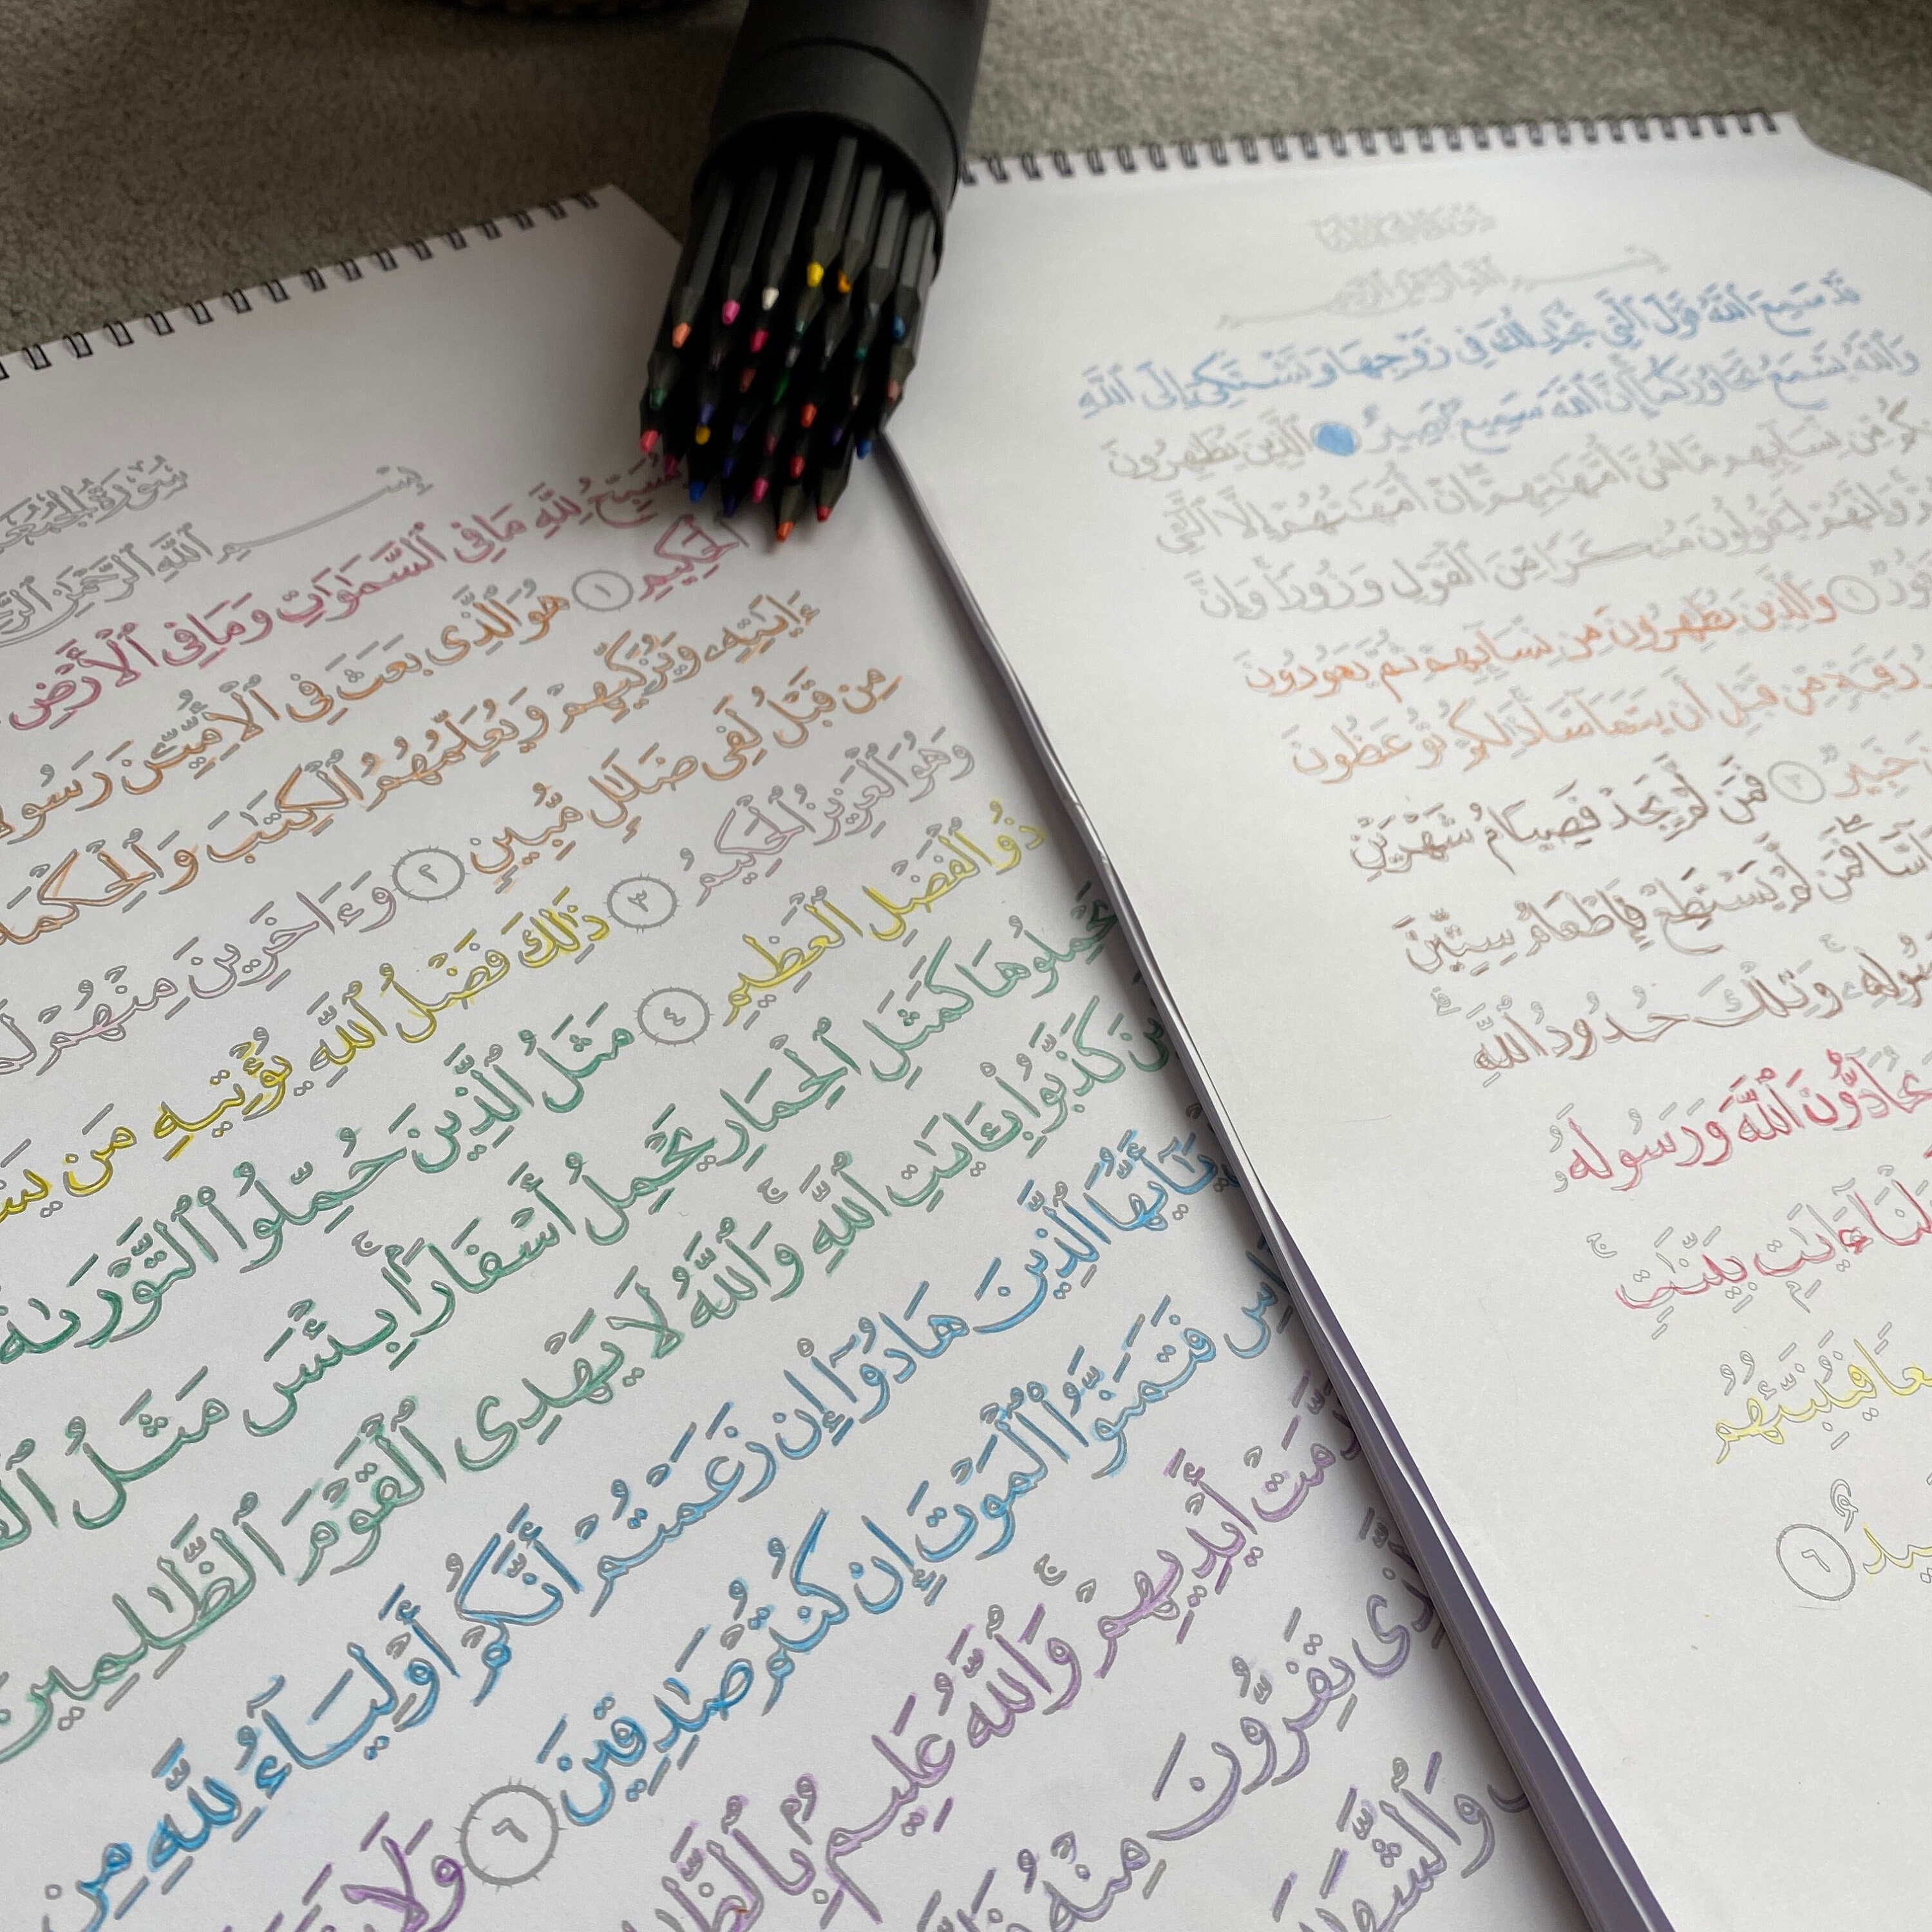 سُورَةُ الْجُمُعَة
بِسْمِ ٱللَّهِ ٱلرَّحْمَٰنِ
يُسَبِّحُ لِلَّهِ مَا فِى ٱلسَّمَٰوَٰتِ وَمَا فِى ٱلْأَرْضِ
ٱلْحَكِيمِ ١ هُوَ ٱلَّذِى بَعَثَ فِى ٱلْأُمِّيِّـۧنَ رَسُولًا
ءَايَٰتِهِۦ وَيُزَكِّيهِمْ وَيُعَلِّمُهُمُ ٱلْكِتَٰبَ وَٱلْحِكْمَةَ
مِن قَبْلُ لَفِى ضَلَٰلٍ مُّبِينٍ ٢ وَءَاخَرِينَ مِنْهُمْ
وَهُوَ ٱلْعَزِيزُ ٱلْحَكِيمُ ٣ ذَٰلِكَ فَضْلُ ٱللَّهِ يُؤْتِيهِ مَن
ذُو ٱلْفَضْلِ ٱلْعَظِيمِ ٤ مَثَلُ ٱلَّذِينَ حُمِّلُوا۟ ٱلتَّوْرَىٰةَ
يَحْمِلُوهَا كَمَثَلِ ٱلْحِمَارِ يَحْمِلُ أَسْفَارًۢا ۚ بِئْسَ مَثَلُ
كَذَّبُوا۟ بِـَٔايَٰتِ ٱللَّهِ ۚ وَٱللَّهُ لَا يَهْدِى ٱلْقَوْمَ ٱلظَّٰلِمِينَ
يَٰٓأَيُّهَا ٱلَّذِينَ هَادُوٓا۟ إِن زَعَمْتُمْ أَنَّكُمْ أَوْلِيَآءُ لِلَّهِ مِن
فَتَمَنَّوُا۟ ٱلْمَوْتَ إِن كُنتُمْ صَٰدِقِينَ ٦ وَلَا
أَيْدِيهِمْ ۚ وَٱللَّهُ عَلِيمٌۢ
تَفِرُّونَ مِنْهُ
قَدْ سَمِعَ ٱللَّهُ قَوْلَ ٱلَّتِى تُجَٰدِلُكَ فِى زَوْجِهَا وَتَشْتَكِىٓ إِلَى ٱللَّهِ
وَٱللَّهُ يَسْمَعُ تَحَاوُرَكُمَآ ۚ إِنَّ ٱللَّهَ سَمِيعٌۢ بَصِيرٌ ١ ٱلَّذِينَ يُظَٰهِرُونَ
مِن نِّسَآئِهِم مَّا هُنَّ أُمَّهَٰتِهِمْ ۖ إِنْ أُمَّهَٰتُهُمْ إِلَّا ٱلَّٰٓـِٔى
وَإِنَّهُمْ لَيَقُولُونَ مُنكَرًا مِّنَ ٱلْقَوْلِ وَزُورًا ۚ وَإِنَّ
٢ وَٱلَّذِينَ يُظَٰهِرُونَ مِن نِّسَآئِهِمْ ثُمَّ يَعُودُونَ
رَقَبَةٍ مِّن قَبْلِ أَن يَتَمَآسَّا ۚ ذَٰلِكُمْ تُوعَظُونَ
خَبِيرٌ ٣ فَمَن لَّمْ يَجِدْ فَصِيَامُ شَهْرَيْنِ
فَمَن لَّمْ يَسْتَطِعْ فَإِطْعَامُ سِتِّينَ
وَتِلْكَ حُدُودُ ٱللَّهِ ۗ
يُحَآدُّونَ ٱللَّهَ وَرَسُولَهُۥ
ءَايَٰتٍۭ بَيِّنَٰتٍ ۚ
فَيُنَبِّئُهُم
٦